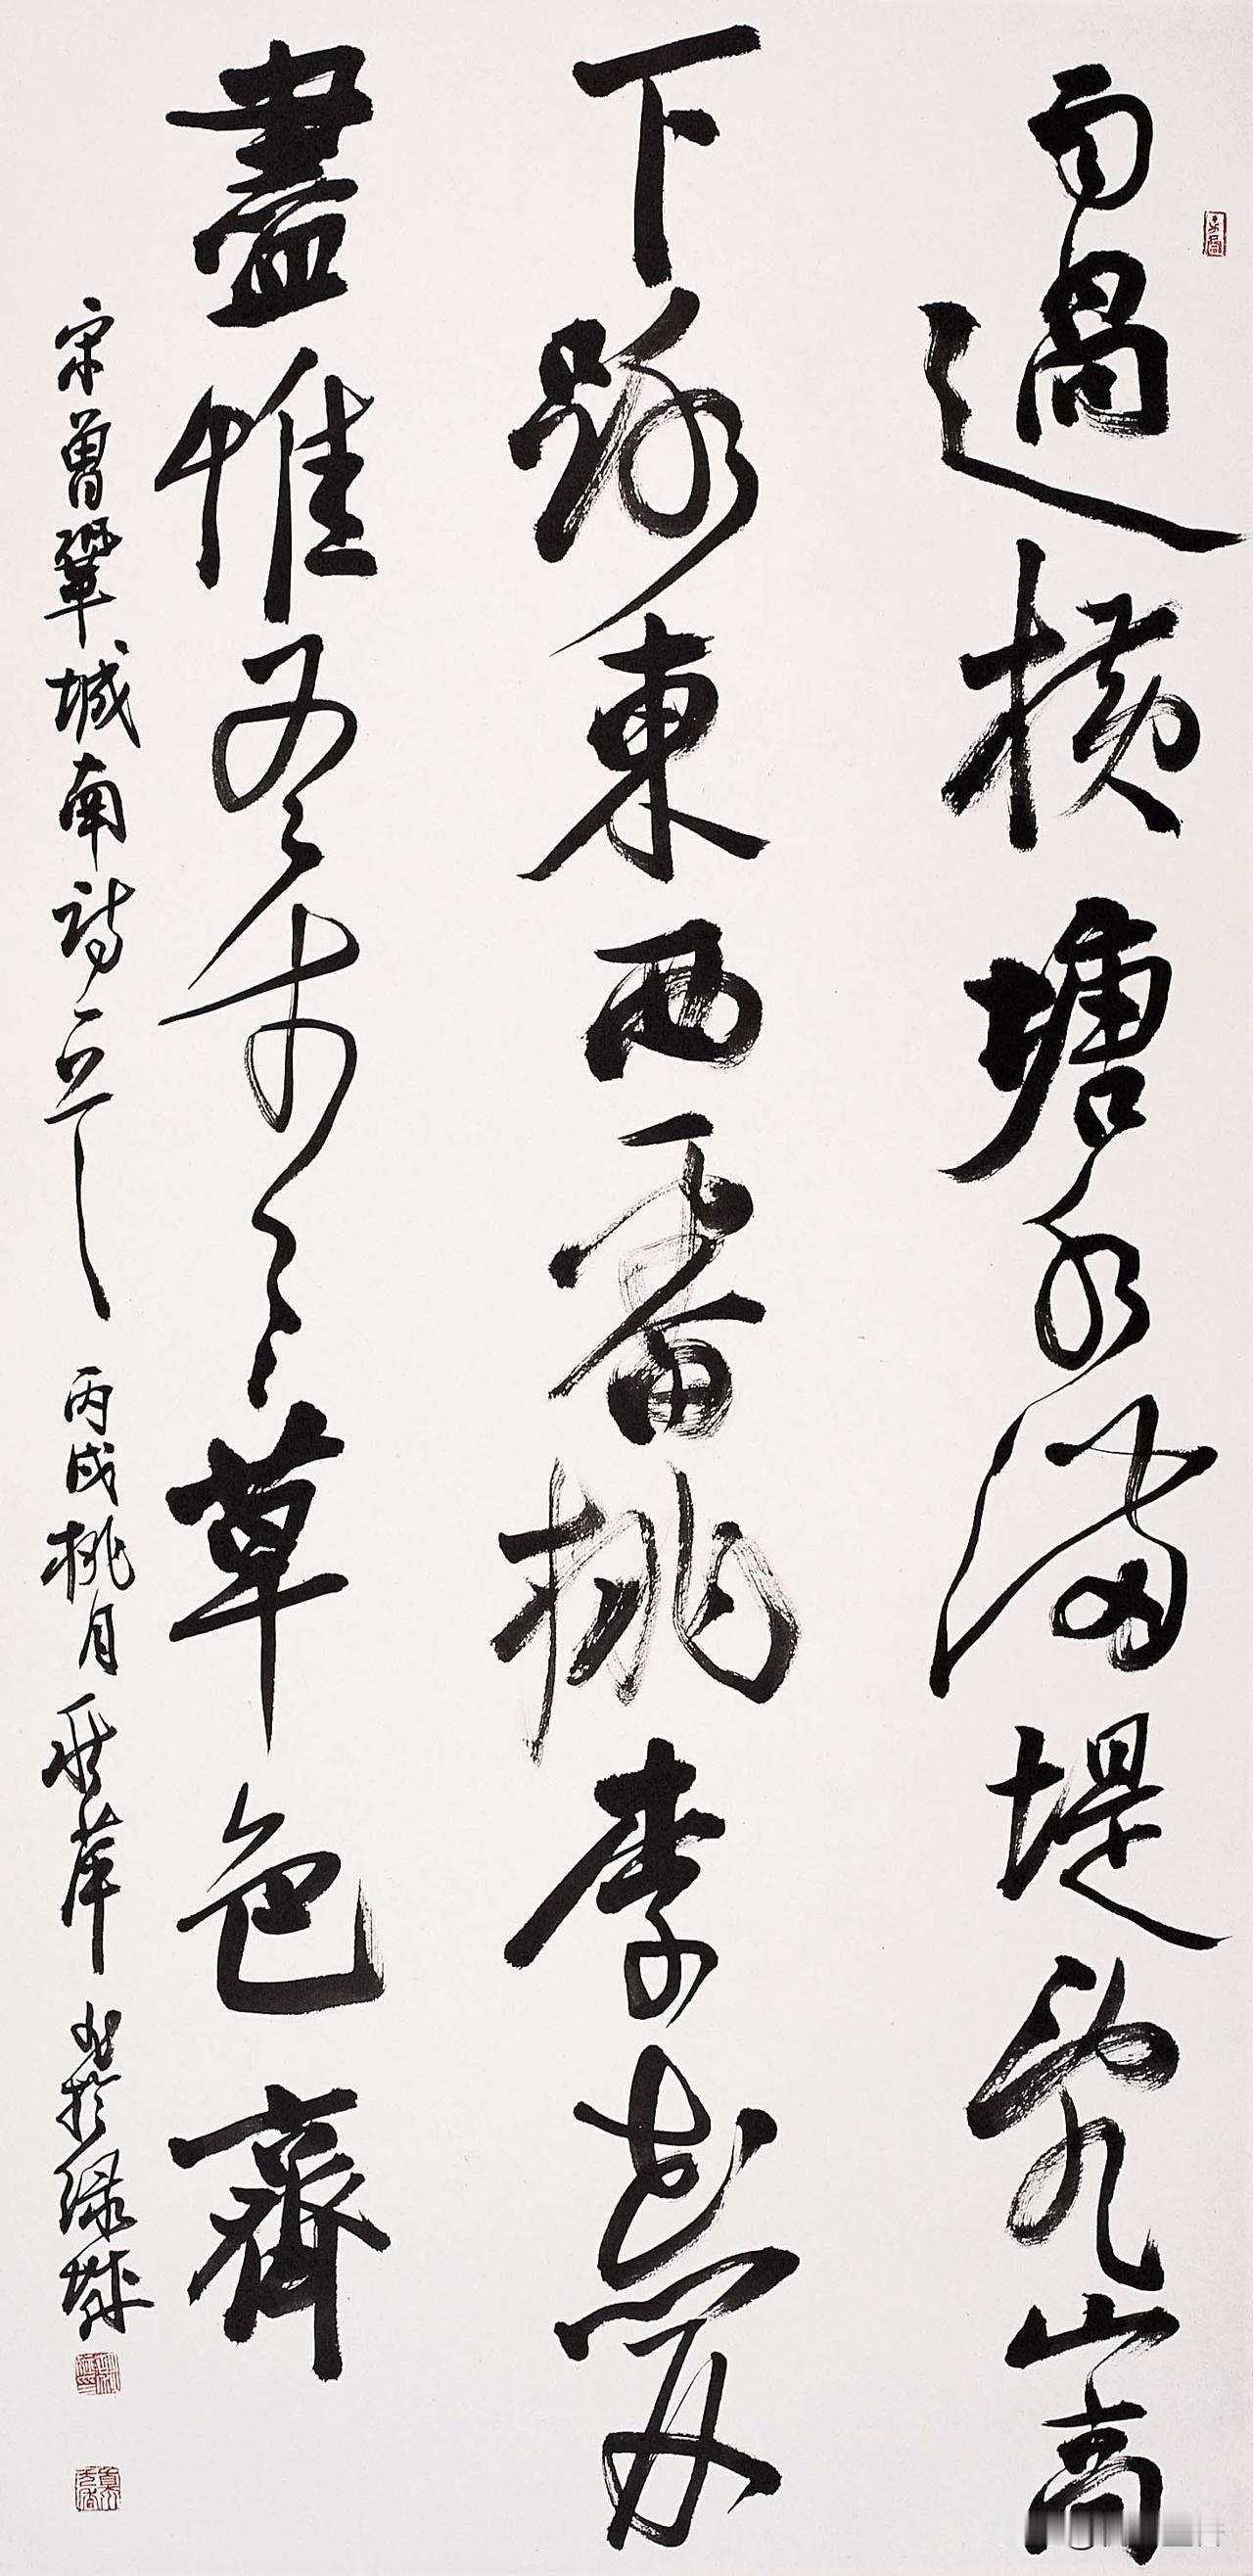 雨過橫塘水滿堤亂山高
下路東西一番桃李花開
盡惟有青々草色齊
宋曾鞏城南詩一首
丙戌桃月張華書於綠城